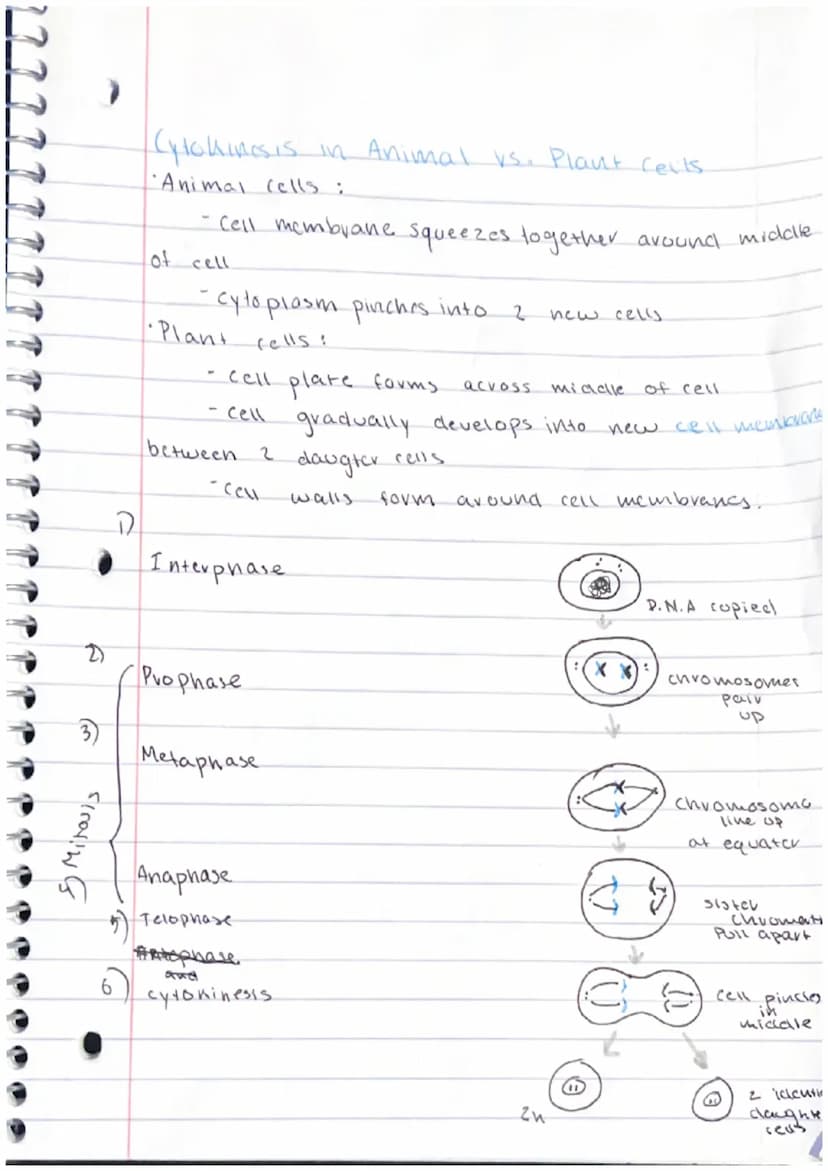 Cytokinesis in Animal vs. Plant Cells
· Animal cells :
- cell membrane squeezes together around middle
of cell
- cytoplasm pinches into 2 new cells
· Plant cells :
- cell plate forms across middle of cell
- cell gradually develops into new cell membrane
between 2 daugter cells
- cell walls form around cell membranes.
1)
Interphase
D.N.A copied
2)
Prophase
chromosomes
pair
up
3)
Metaphase
chromosome
line up
at equater
Mitosis
Anaphase
sister
chromat
pull apart
5) Telophase
and
6) cytokinesis
cell pinches
in
middle
2n
2 identi
daughte
cells